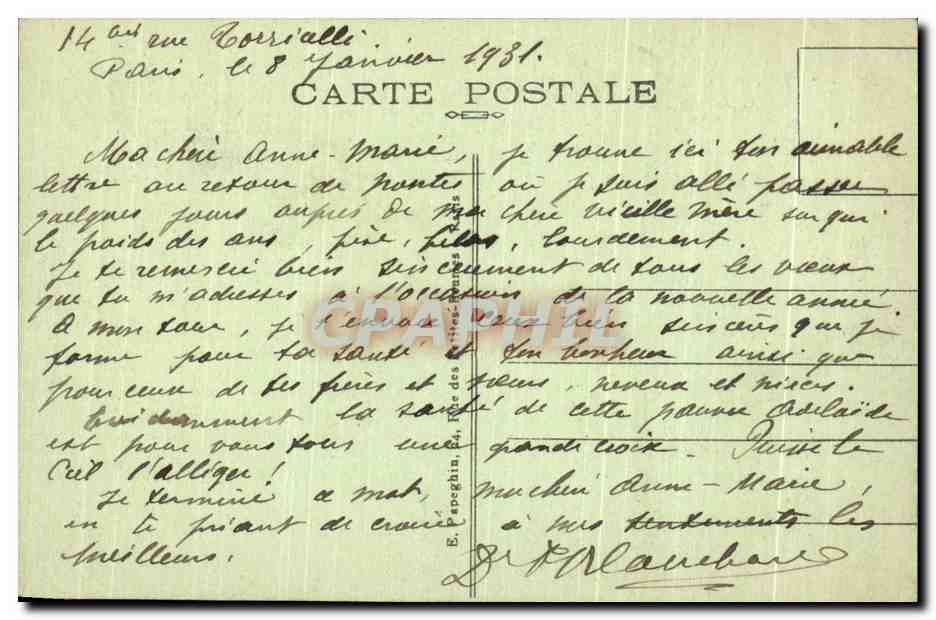 14 bis rue Torricelli
Paris, le 8 Janvier 1931.
CARTE POSTALE
Ma chère Anne-Marie, je trouve ici ton aimable
lettre au retour de Nantes où je suis allé passer
quelques jours auprès de ma chère vieille mère sur qui
le poids des ans, pèse, hélas, lourdement.
Je te remercie bien sincèrement de tous les vœux
que tu m'adresses à l'occasion de la nouvelle année
A mon tour, je t'envoie ceux bien sincères que je
forme pour ta santé et ton bonheur ainsi que
pour ceux de tes frères et sœurs, neveux et nièces.
Evidemment la santé de cette pauvre Adélaïde
est pour vous tous une grande croix. Puisse le
Ciel l'alléger!
Je termine ce mot, ma chère Anne-Marie,
en te priant de croire à mes sentiments les
meilleurs.
Dr Blanchard
E. Papeghin, Rue des Petites-Ecuries, Paris
CPAPHIL